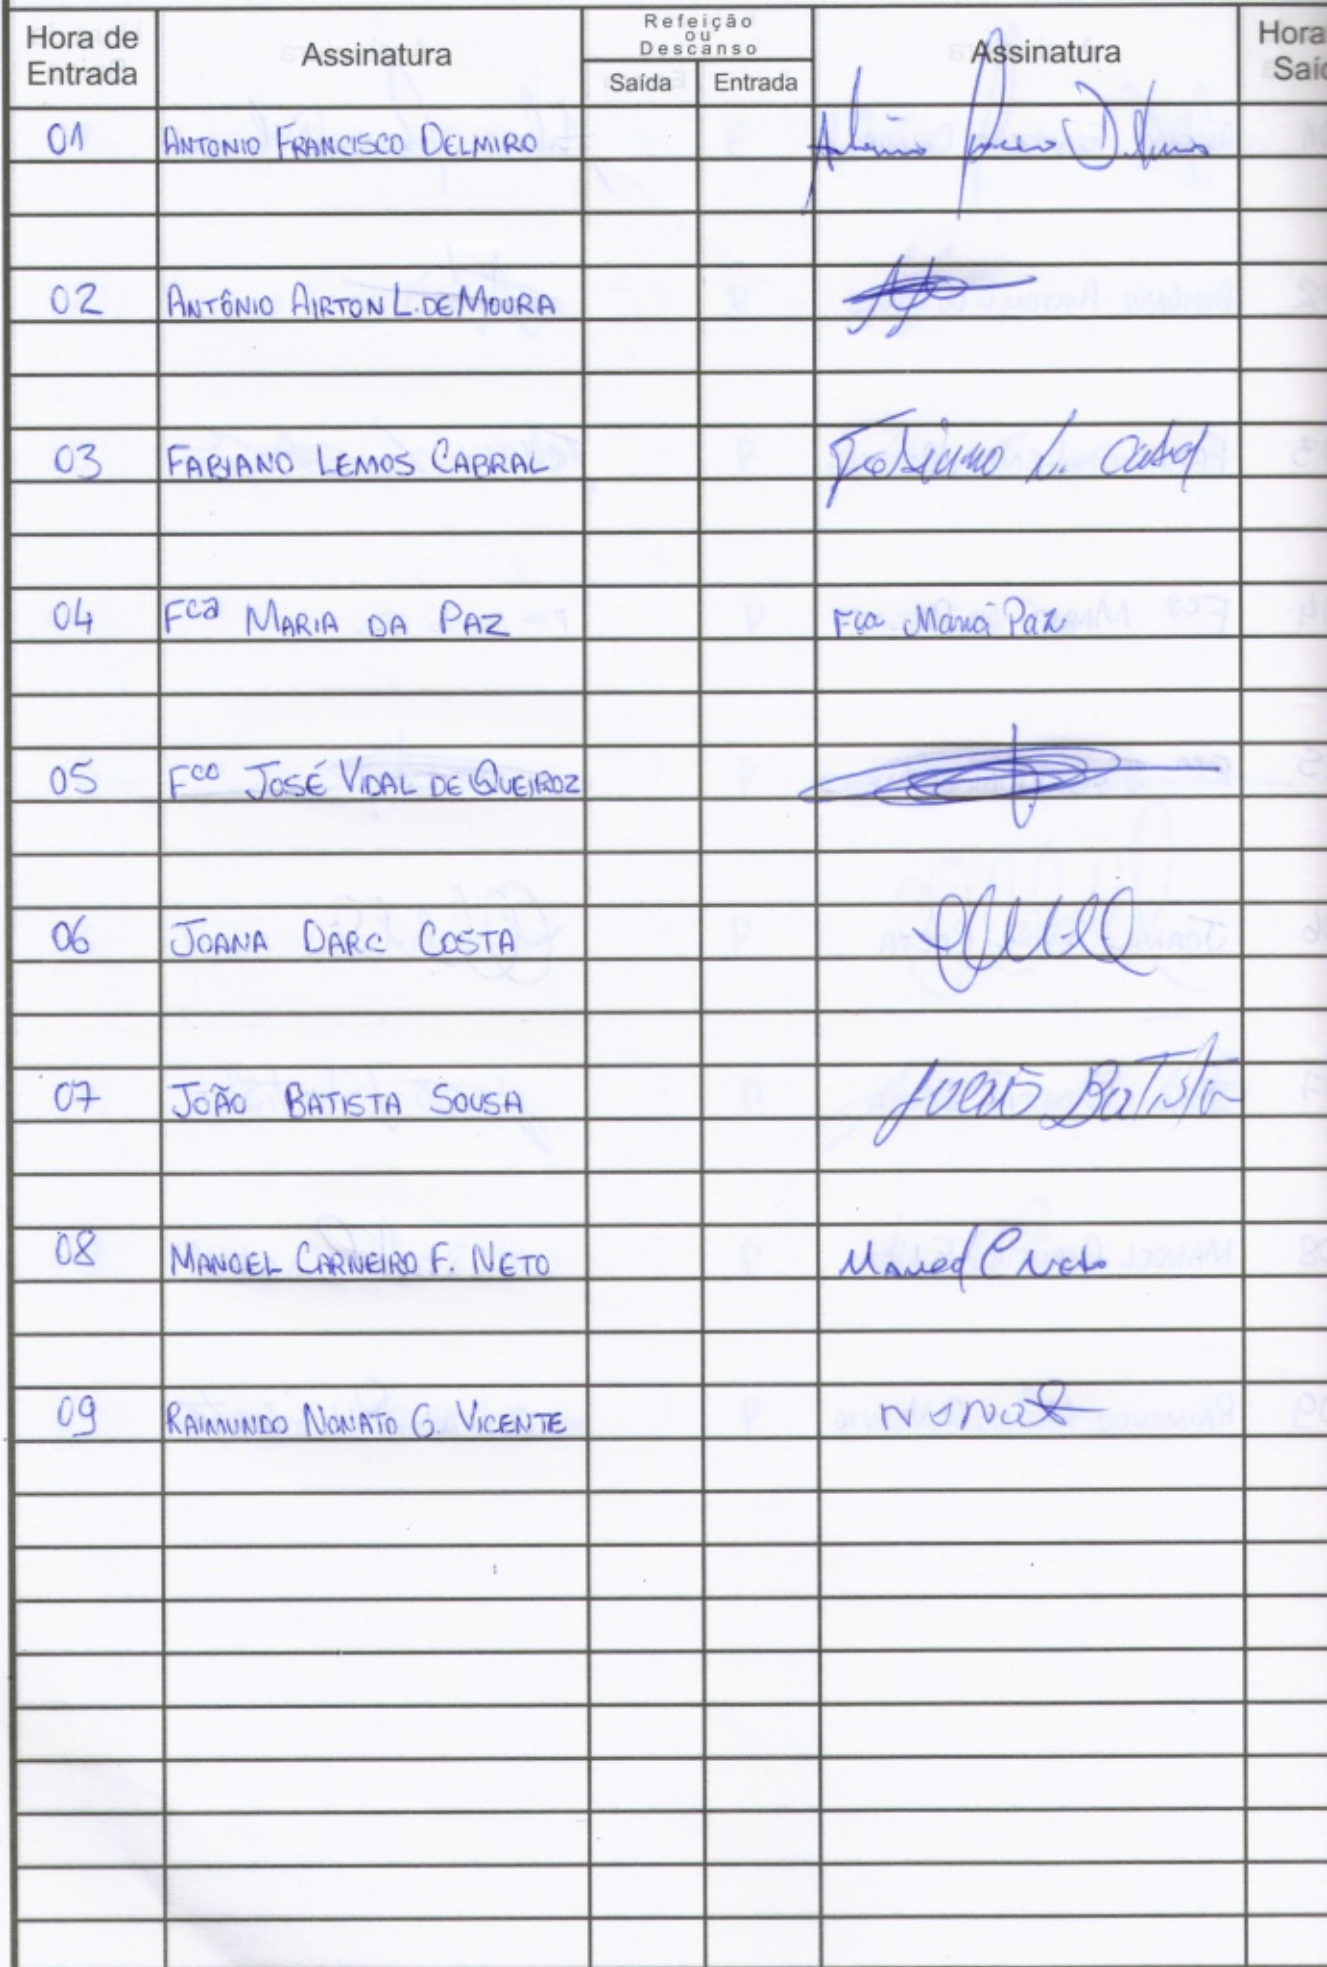 Hora de Entrada Assinatura Refeição ou Descanso Assinatura Hora
Saída Entrada
01 ANTONIO FRANCISCO DELMIRO
02 ANTÔNIO AIRTON L. DE MOURA
03 FABIANO LEMOS CABRAL Fabiano L. Cabral
04 Fca MARIA DA PAZ Fca Maria Paz
05 Fco JOSÉ VIDAL DE QUEIROZ
06 JOANA DARC COSTA
07 JOÃO BATISTA SOUSA João Batista
08 MANOEL CARNEIRO F. NETO Manoel C Neto
09 RAIMUNDO NONATO G. VICENTE